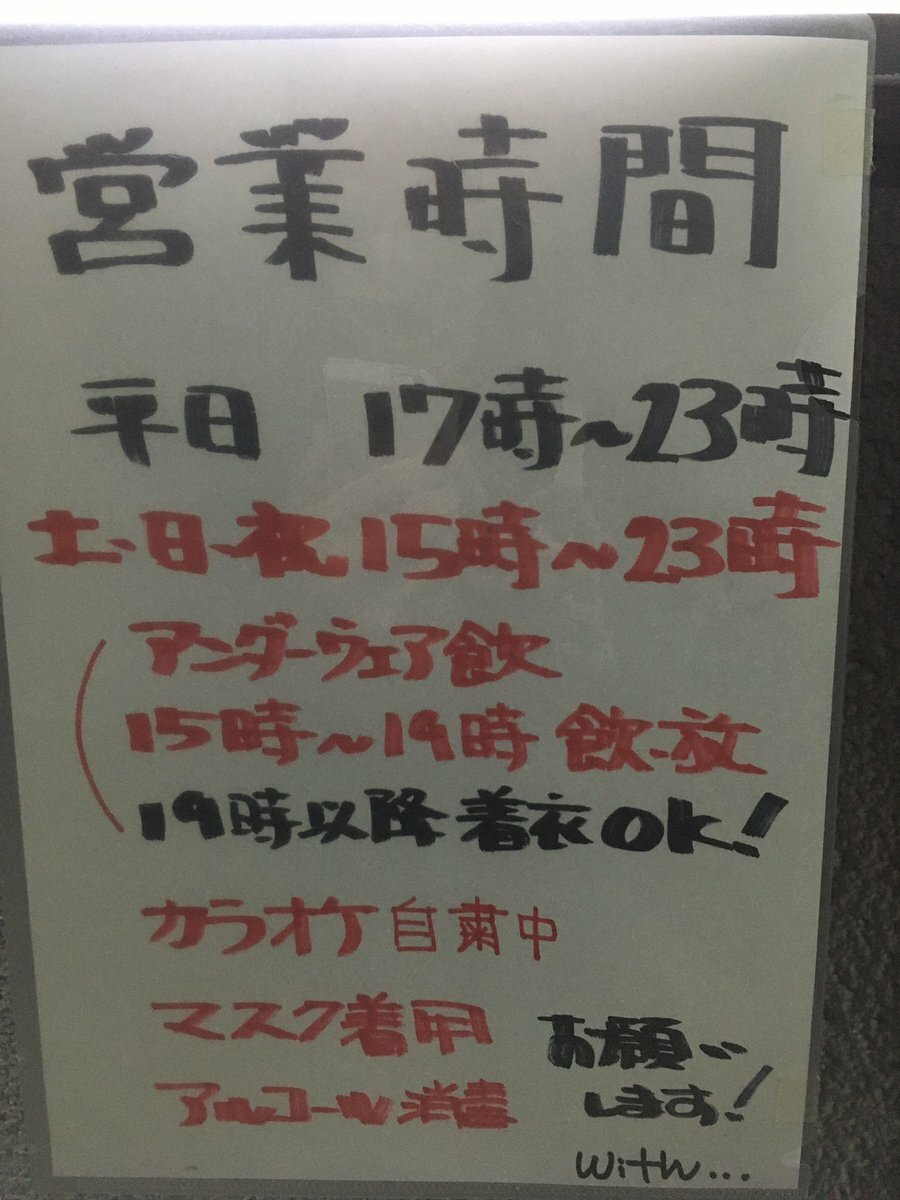 営業時間
平日 17時~23時
土・日・祝 15時~23時
アンダーウェア飲
15時~19時 飲・放
19時以降 着衣OK!
カラオケ自粛中
マスク着用 お願い
アルコール消毒 します!
with...